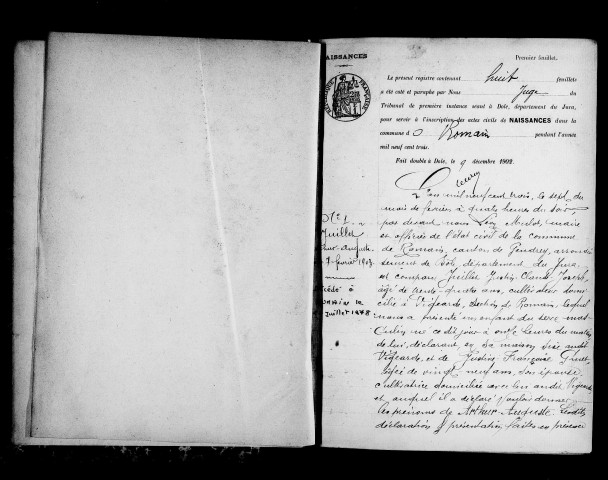 NAISSANCES
Premier feuillet.
Le présent registre contenant huit feuillets
a été coté et paraphé par Nous Juge du
Tribunal de première instance séant à Dole, département du Jura,
pour servir à l'inscription des actes civils de NAISSANCES dans la
commune d Romain pendant l'année
mil neuf cent trois.
Fait double à Dole, le 9 décembre 1902.
L'an mil neuf cent trois, le sept du
mois de février à quatre heures du soir
par devant nous Léon Mulot, maire
et officier de l'état civil de la commune
de Romain, canton de Gendrey, arrondis
sement de Dole, département du Jura
est comparu Juillet Justin Claude Joseph
âgé de trente-quatre ans, cultivateur domi
cilié à Vigearde, section de Romain, lequel
nous a présenté un enfant du sexe mas
culin né ce dit jour à onze heures du matin
de lui, déclarant, en sa maison sise audit
Vigearde, et de Justine Françoise
âgée de vingt neuf ans, son épouse
cultivatrice domiciliée avec lui audit Vigearde
et auquel il a déclaré vouloir donner
les prénoms de Arthur Auguste. Lesdites
déclaration et présentation faites en présence
N° 1
Juillet
Arthur-Auguste
7 février 1903
Décédé à
le
Juillet 1978